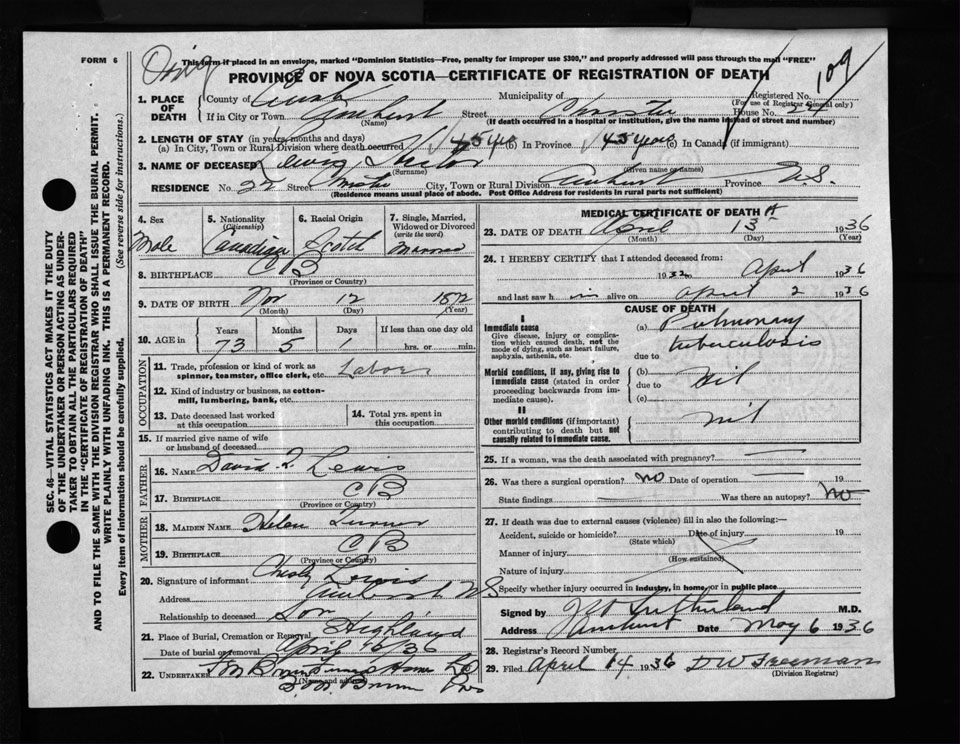 FORM 6
Orig
This form if placed in an envelope, marked "Dominion Statistics—Free, penalty for improper use $300," and properly addressed will pass through the mail "FREE"
PROVINCE OF NOVA SCOTIA—CERTIFICATE OF REGISTRATION OF DEATH
109
1. PLACE OF DEATH
County of Cumb Municipality of Registered No.
(For use of Registrar General only)
If in City or Town Amherst Street House No.
(Name) (If death occurred in a hospital or institution, give the name instead of street and number)
2. LENGTH OF STAY (in years, months and days)
(a) In City, Town or Rural Division where death occurred 45 (b) In Province 45 years (c) In Canada (if immigrant)
3. NAME OF DECEASED Lewis
(Surname) (Given name or names)
RESIDENCE No. Street City, Town or Rural Division Amherst Province N.S.
(Residence means usual place of abode. Post Office Address for residents in rural parts not sufficient)
4. Sex 5. Nationality 6. Racial Origin 7. Single, Married, Widowed or Divorced
(Citizenship) (write the word)
Male Canadian Scotch Married
8. BIRTHPLACE C B
(Province or Country)
9. DATE OF BIRTH Nov 12 1872
(Month) (Day) (Year)
10. AGE in Years Months Days If less than one day old
73 5 1 hrs. or min.
OCCUPATION
11. Trade, profession or kind of work as spinner, teamster, office clerk, etc. Labor
12. Kind of industry or business, as cotton-mill, lumbering, bank, etc.
13. Date deceased last worked at this occupation
14. Total yrs. spent in this occupation
15. If married give name of wife or husband of deceased
FATHER
16. NAME David Lewis
17. BIRTHPLACE C B
(Province or Country)
MOTHER
18. MAIDEN NAME Helen Turner
19. BIRTHPLACE C B
(Province or Country)
20. Signature of informant Lewis
Address Amherst N S
Relationship to deceased Son
21. Place of Burial, Cremation or Removal Highland
Date of burial or removal April /36
22. UNDERTAKER
(Name and address)
MEDICAL CERTIFICATE OF DEATH
23. DATE OF DEATH April 13th 1936
(Month) (Day) (Year)
24. I HEREBY CERTIFY that I attended deceased from:
1932 April 1936
and last saw h im alive on April 2 1936
CAUSE OF DEATH
I
Immediate cause
Give disease, injury or complication which caused death, not the mode of dying, such as heart failure, asphyxia, asthenia, etc.
(a) Pulmonary tuberculosis
due to
Morbid conditions, if any, giving rise to immediate cause (stated in order proceeding backwards from immediate cause).
(b) Nil
due to
(c)
II
Other morbid conditions (if important) contributing to death but not causally related to immediate cause.
nil
25. If a woman, was the death associated with pregnancy?
26. Was there a surgical operation? No Date of operation 19
State findings Was there an autopsy? No
27. If death was due to external causes (violence) fill in also the following:—
Accident, suicide or homicide? Date of injury 19
(State which)
Manner of injury
(How sustained)
Nature of injury
Specify whether injury occurred in industry, in home, or in public place
Signed by Sutherland M.D.
Address Amherst Date May 6 1936
28. Registrar's Record Number
29. Filed April 14 1936 D W Freeman
(Division Registrar)
SEC. 46—VITAL STATISTICS ACT MAKES IT THE DUTY
OF THE UNDERTAKER OR PERSON ACTING AS UNDER-
TAKER TO OBTAIN ALL THE PARTICULARS REQUIRED
IN THE "CERTIFICATE OF REGISTRATION OF DEATH"
AND TO FILE THE SAME WITH THE DIVISION REGISTRAR WHO SHALL ISSUE THE BURIAL PERMIT.
WRITE PLAINLY WITH UNFADING INK. THIS IS A PERMANENT RECORD.
Every item of information should be carefully supplied. (See reverse side for instructions.)